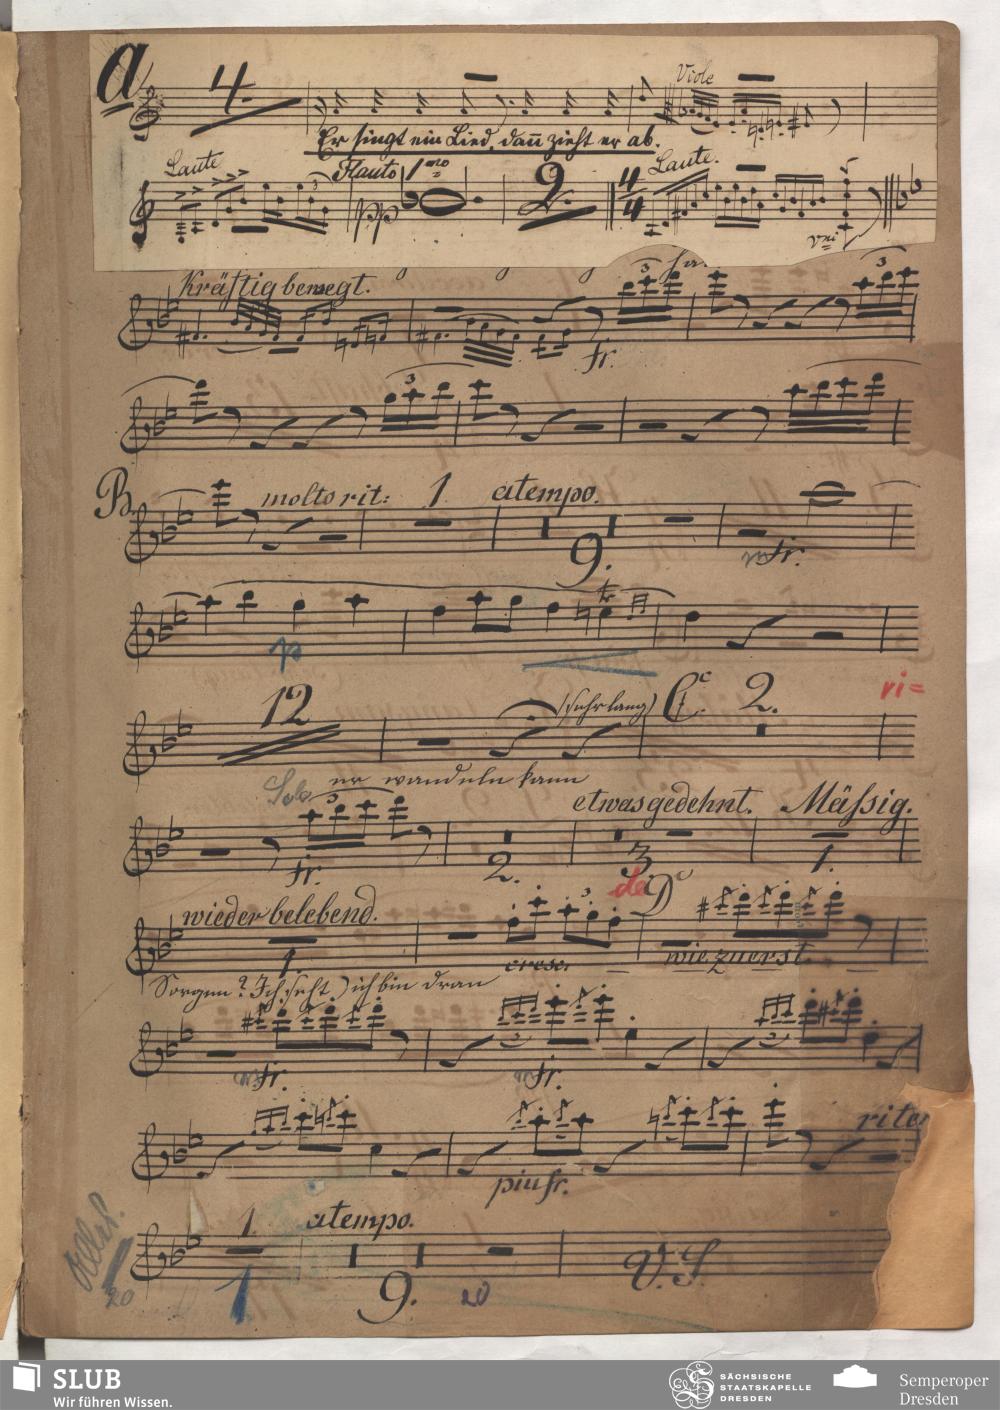 a
4.
Viole
Er singt ein Lied, dañ zieht er ab.
Laute
Flauto 1mo
Laute.
pp
2.
4/4
vni
Kräftig bewegt.
3
3
fr.
3
B.
molto rit:
1
atempo.
9.
mfr.
p
tr
12
(sehr lang)
C.
2.
ri=
er wandeln kann
Solo
3
etwas gedehnt.
Mässig.
fr.
2.
3
1.
de
D
wieder belebend.
1
3
cresc.
wie zuerst.
Sorgen? Ich (seht) ich bin dran
mfr.
3
mfr.
3
riter
piu fr.
20
1.
atempo.
1
9.
20
V. S.
SLUB
Wir führen Wissen.
SÄCHSISCHE
STAATSKAPELLE
DRESDEN
Semperoper
Dresden